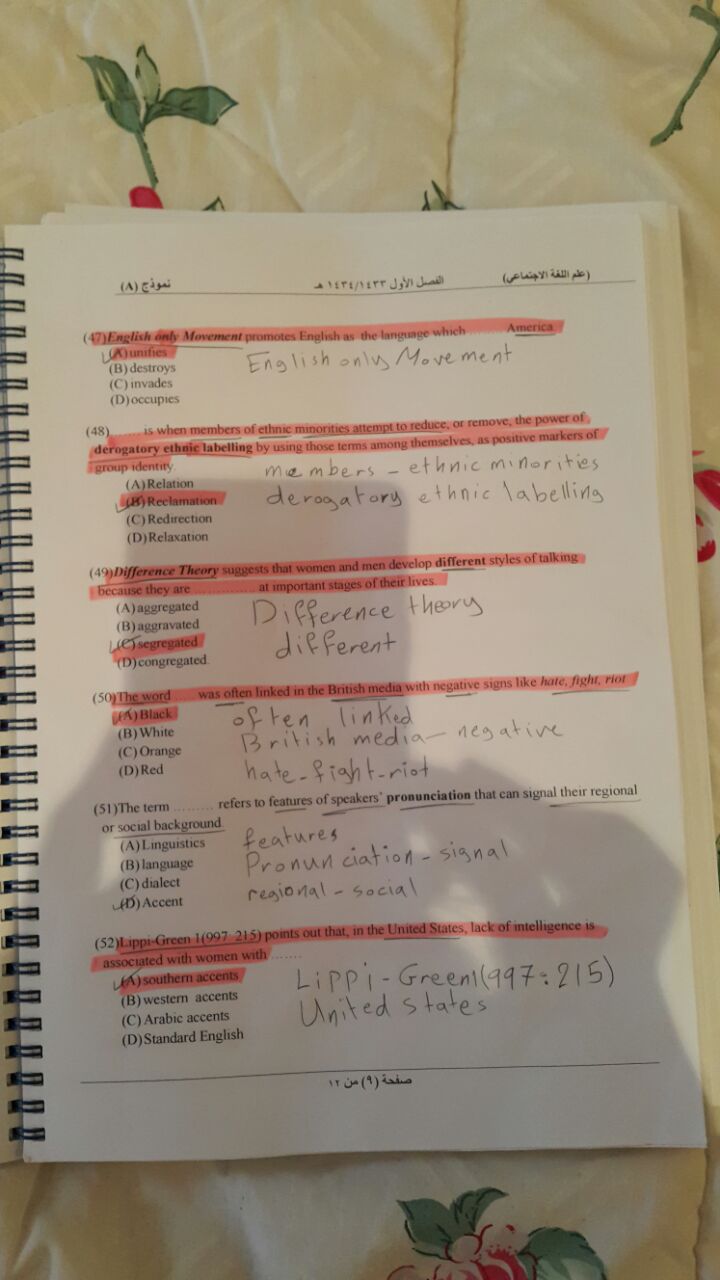 (علم اللغة الاجتماعي) الفصل الأول ١٤٣٤/١٤٣٣ هـ نموذج (A)
(47)English only Movement promotes English as the language which ............ America.
(A) unifies
English only Movement
(B) destroys
(C) invades
(D) occupies
(48) ........ is when members of ethnic minorities attempt to reduce, or remove, the power of
derogatory ethnic labelling by using those terms among themselves, as positive markers of
group identity.
members - ethnic minorities
(A) Relation
(B) Reclamation
derogatory ethnic labelling
(C) Redirection
(D) Relaxation
(49)Difference Theory suggests that women and men develop different styles of talking
because they are .............. at important stages of their lives.
(A) aggregated
Difference theory
(B) aggravated
(C) segregated
different
(D) congregated.
(50)The word ...... was often linked in the British media with negative signs like hate, fight, riot
(A) Black
often linked
(B) White
British media - negative
(C) Orange
(D) Red
hate - fight - riot
(51)The term ......... refers to features of speakers' pronunciation that can signal their regional
or social background.
(A) Linguistics
features
(B) language
Pronunciation - signal
(C) dialect
regional - social
(D) Accent
(52)Lippi-Green 1(997 215) points out that, in the United States, lack of intelligence is
associated with women with .......
(A) southern accents
Lippi - Green1(997:215)
(B) western accents
United states
(C) Arabic accents
(D) Standard English
صفحة (٩) من ١٢